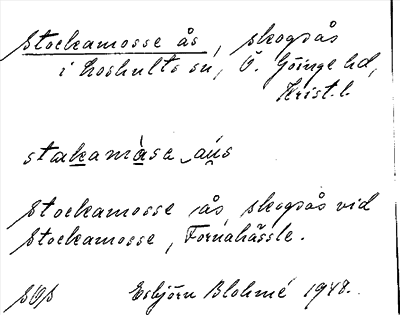 Stockamosse ås, skogsås
i Loshults sn, Ö. Göinge hd,
Krist. l.
stakamòsa_au̯s
Stockamosse ås, skogsås vid
Stockamosse, Fornahässle.
SOS Esbjörn Blohmé 1948.